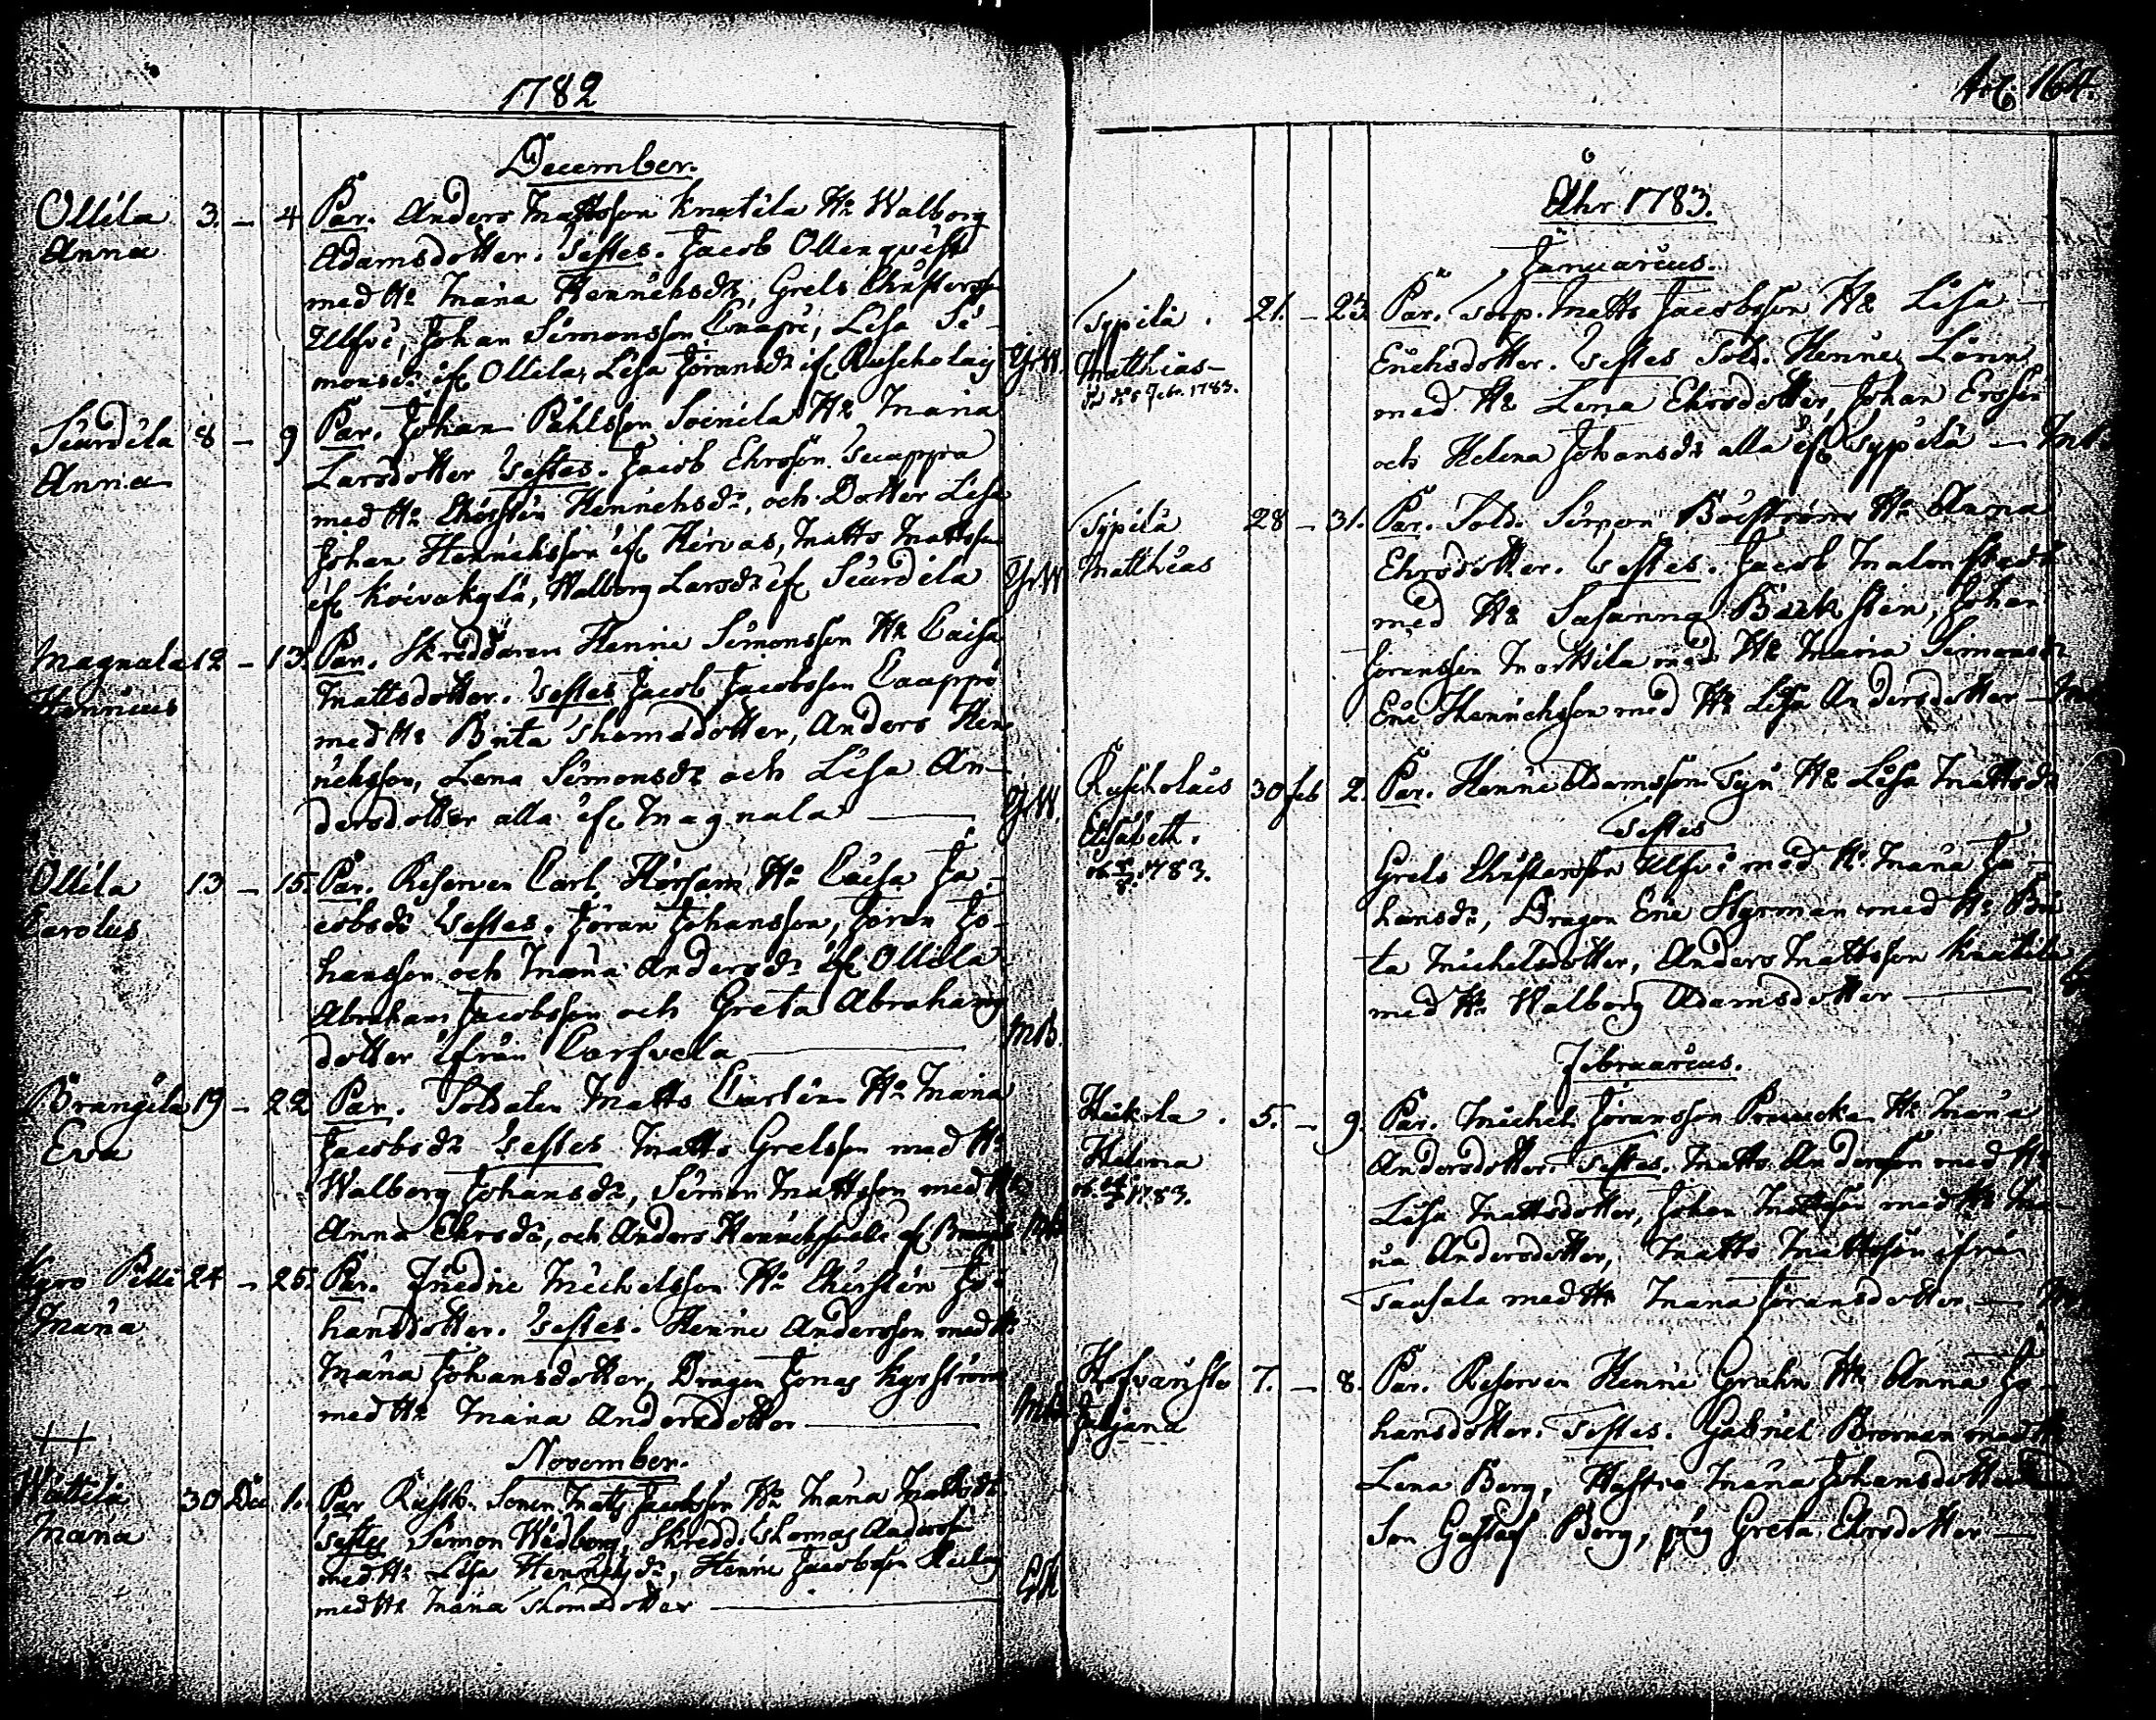 1782
December.
Ollila 3. – 4 Par. Anders Mattsson Knutila Hu Walborg
Anna Adamsdotter. Testes. Jacob Ollenqvist
med Hu Maria Henrichsdr, Grels Christersson
Ulfvi, Johan Simonsson Caapri, Lisa Si-
monsdr if Ollila, Lisa Göransdr if Ruscholais
Siurdila 8 – 9 Par. Johan Påhlsson Soinila Hu Maria
Anna Larsdotter Testes. Jacob Ehrsson
med Hu Chirstin Henrichsdr, och Dotter Lisa
Johan Henrichsson if Hirvas, Matts Mattsson
if Koivakylä, Walborg Larsdr if Siurdila
Magnala 12 – 13. Par. Skreddaren Henric Simonsson Hu Caisa
Henricus Mattsdotter. Testes Jacob Jacobsson Caappo
med Hu Brita Thomædotter, Anders Hen-
richsson, Lena Simonsdr och Lisa An-
dersdotter alla if Magnala
Ollila 13 – 15. Par. Reserven Carl Hörsam Hu Caisa Ja-
Carolus cobsdr Testes. Jöran Johansson, Jöran Jo-
hansson och Maria Andersdr if Ollila
Abraham Jacobsson och Greta Abrahams
dotter ifrån Corfvola MB.
Brangila 19 – 22 Par. Soldaten Matts Carlin Hu Maria
Eva Jacobsdr Testes Matts Grelsson med Hu
Walborg Johansdr, Simon Mattsson med Hu
Anna Ehrsdr, och Anders Henrichsson
Kyro Pelli 24 – 25. Par. Michelsson Hu Chirstin Jo-
Maria hansdotter. Testes. Henric Andersson med Hu
Maria Johansdotter, Dragon Jonas Kyrström
med Hu Maria Andersdotter
November.
Wättilä 30 Dec 1. Par Rusth. Sonen Matts Jacobsson Hu Maria Mattsdr
Maria Testes Simon Widborg, Skredd. Thomas Andersson
med Hu Lisa Henrichsdr, Henric Jacobsson
med Hu Maria Thomædotter
164.
Åhr 1783.
Januarius.
Sypilä. 21. – 23. Par. Torp. Matts Jacobsson Hu Lisa
Matthias Erichsdotter. Testes Sold. Henric Lönn
Febr. 1783. med Hu Lena Ehrsdotter, Johan Ersson
och Helena Johansdr alla if Sypilä
Sypilä 28 – 31. Par. Sold. Simon Boström Hu Anna
Matthias Ehrsdotter. Testes. Jacob Malmstedt
med Hu Susanna Bäcksten, Johan
Göransson Marttila med Hu Maria Simonsdr
Eric Henrichsson med Hu Lisa Andersdotter
Ruscholais 30 feb 2. Par. Henric Adamsson Hu Lisa Mattsdr
Elisabeth. Testes
ob. 1783. Grels Christersson Ulfvi med Hu Maria Jo-
hansdr, Dragon Eric Styrman med Hu Bri
ta Michelsdotter, Anders Mattsson Knutila
med Hu Walborg Adamsdotter
Februarius.
Hukola. 5. – 9. Par. Michel Göransson Hu Maria
Helena Andersdotter. Testes. Matts Andersson med Hu
ob. 1783. Lisa Mattsdotter, Johan Mattsson med Hu Ma-
ria Andersdotter, Matts Mattsson ifrån
med Hu Maria Göransdotter
Hofvirista 7. – 8. Par. Reserven Henric Grahn Hu Anna Jo-
Juljana hansdotter. Testes. Gabriel Broman med Hu
Lena Berg, Hustro Maria Johansdotter
Son Gustaf Berg, pig Greta Ehrsdotter